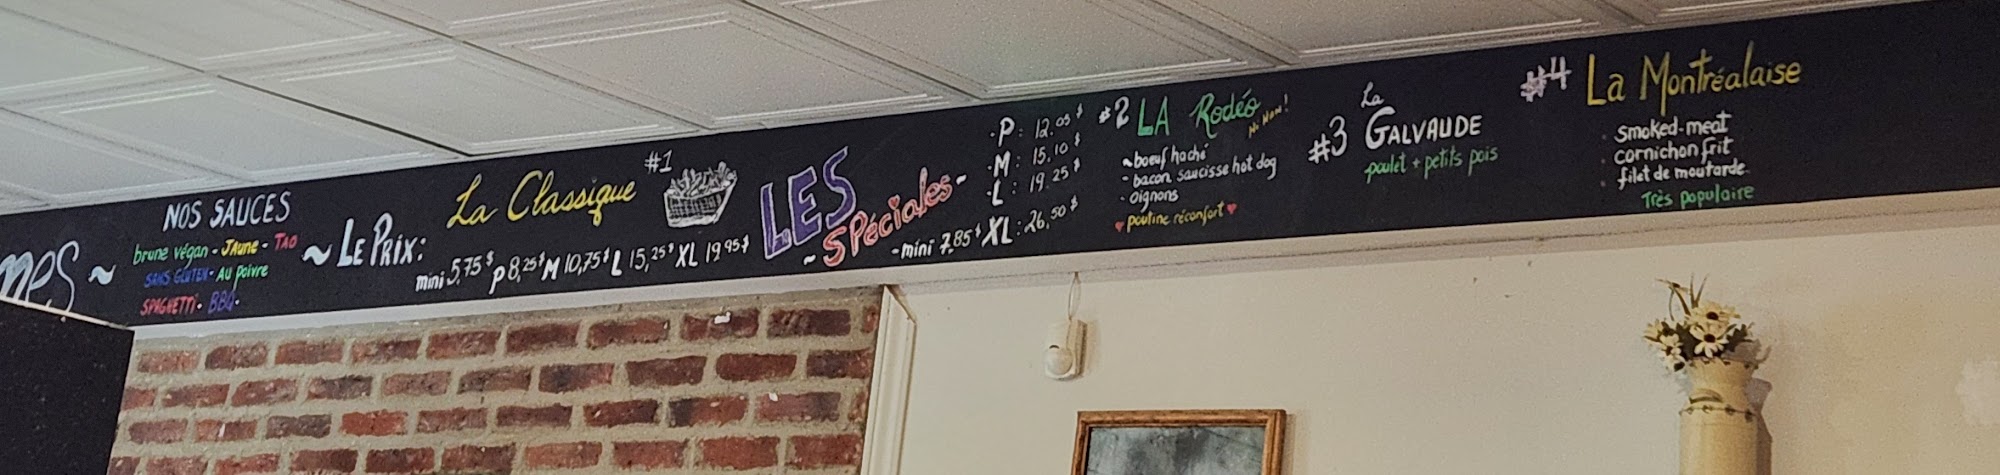 mes ~
NOS SAUCES
brune végan - JAUNE - TAO
SANS GLUTEN - AU poivre
SPAGHETTI - BBQ -
~ LE PRIX:
La Classique #1
mini 5,75$ P 8,25$ M 10,75$ L 15,25$ XL 19,95$
LES
~ SPÉCIALES -
- mini 7.85$ XL: 26,50$
· P: 12.05$
· M: 15,10$
· L: 19.25$
#2 LA Rodéo
~ boeuf haché
- bacon saucisse hot dog
- oignons
♥ poutine réconfort ♥
La
#3 GALVAUDE
poulet + petits pois
#4 La Montréalaise
· smoked-meat
· cornichon frit
· filet de moutarde
Très populaire